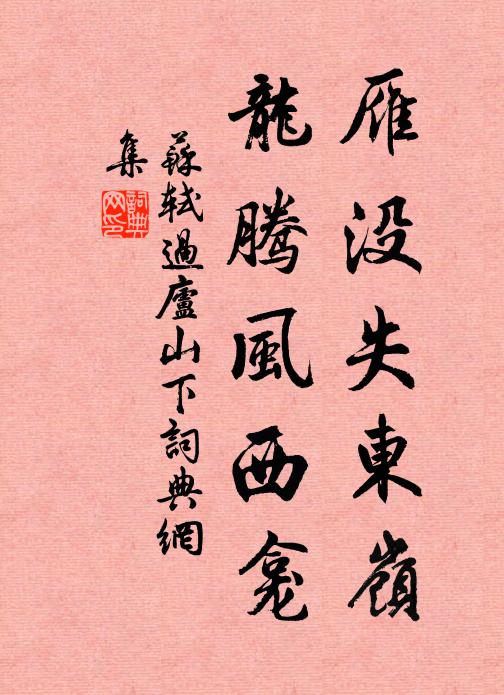 雁没失東嶺
龍腾風西龛
蘇軾過廬山下詞典網
集
詞典
网印